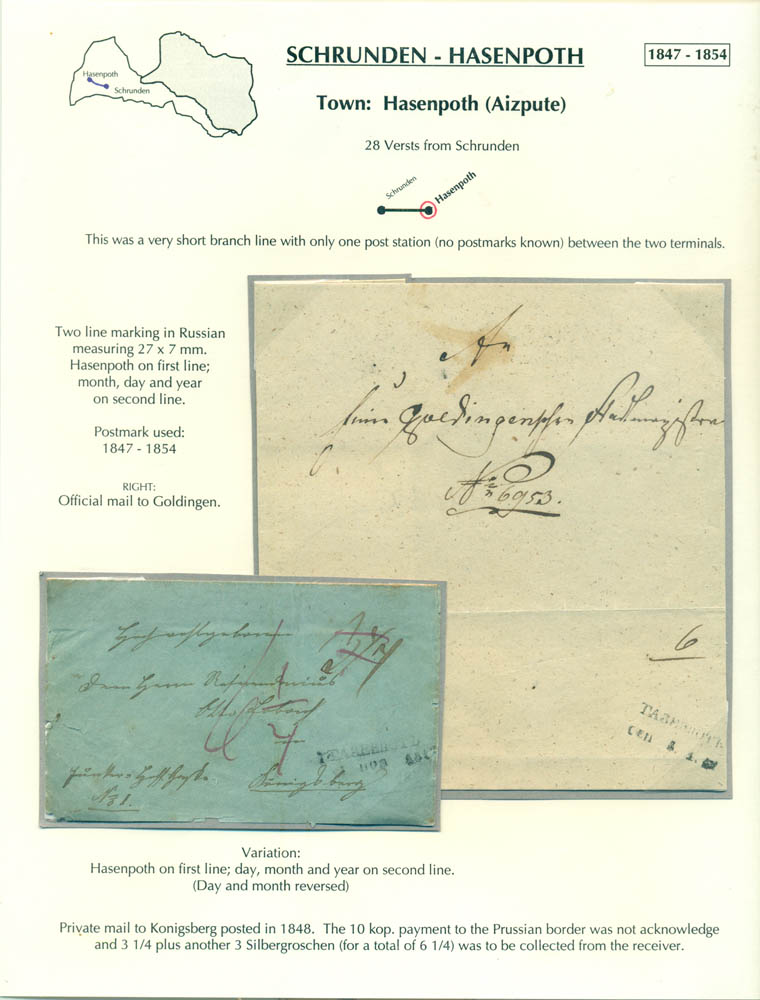 SCHRUNDEN - HASENPOTH
1847 - 1854
Hasenpoth
Schrunden
Town: Hasenpoth (Aizpute)
28 Versts from Schrunden
Schrunden
Hasenpoth
This was a very short branch line with only one post station (no postmarks known) between the two terminals.
Two line marking in Russian
measuring 27 x 7 mm.
Hasenpoth on first line;
month, day and year
on second line.
Postmark used:
1847 - 1854
RIGHT:
Official mail to Goldingen.
An
Goldingenschen Stadtmagistra
No 6953.
6
Dem Herrn
Königsberg
No 31.
Variation:
Hasenpoth on first line; day, month and year on second line.
(Day and month reversed)
Private mail to Konigsberg posted in 1848. The 10 kop. payment to the Prussian border was not acknowledge
and 3 1/4 plus another 3 Silbergroschen (for a total of 6 1/4) was to be collected from the receiver.